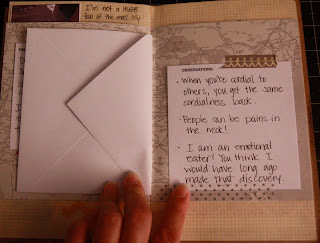 I'm not a HUGE
fan of the email. My
OBSERVATIONS
· When you're cordial to
others, you get the same
cordialness back.
· People can be pains in
the neck!
· I am an emotional
eater! You think I
would have long ago
made that discovery.